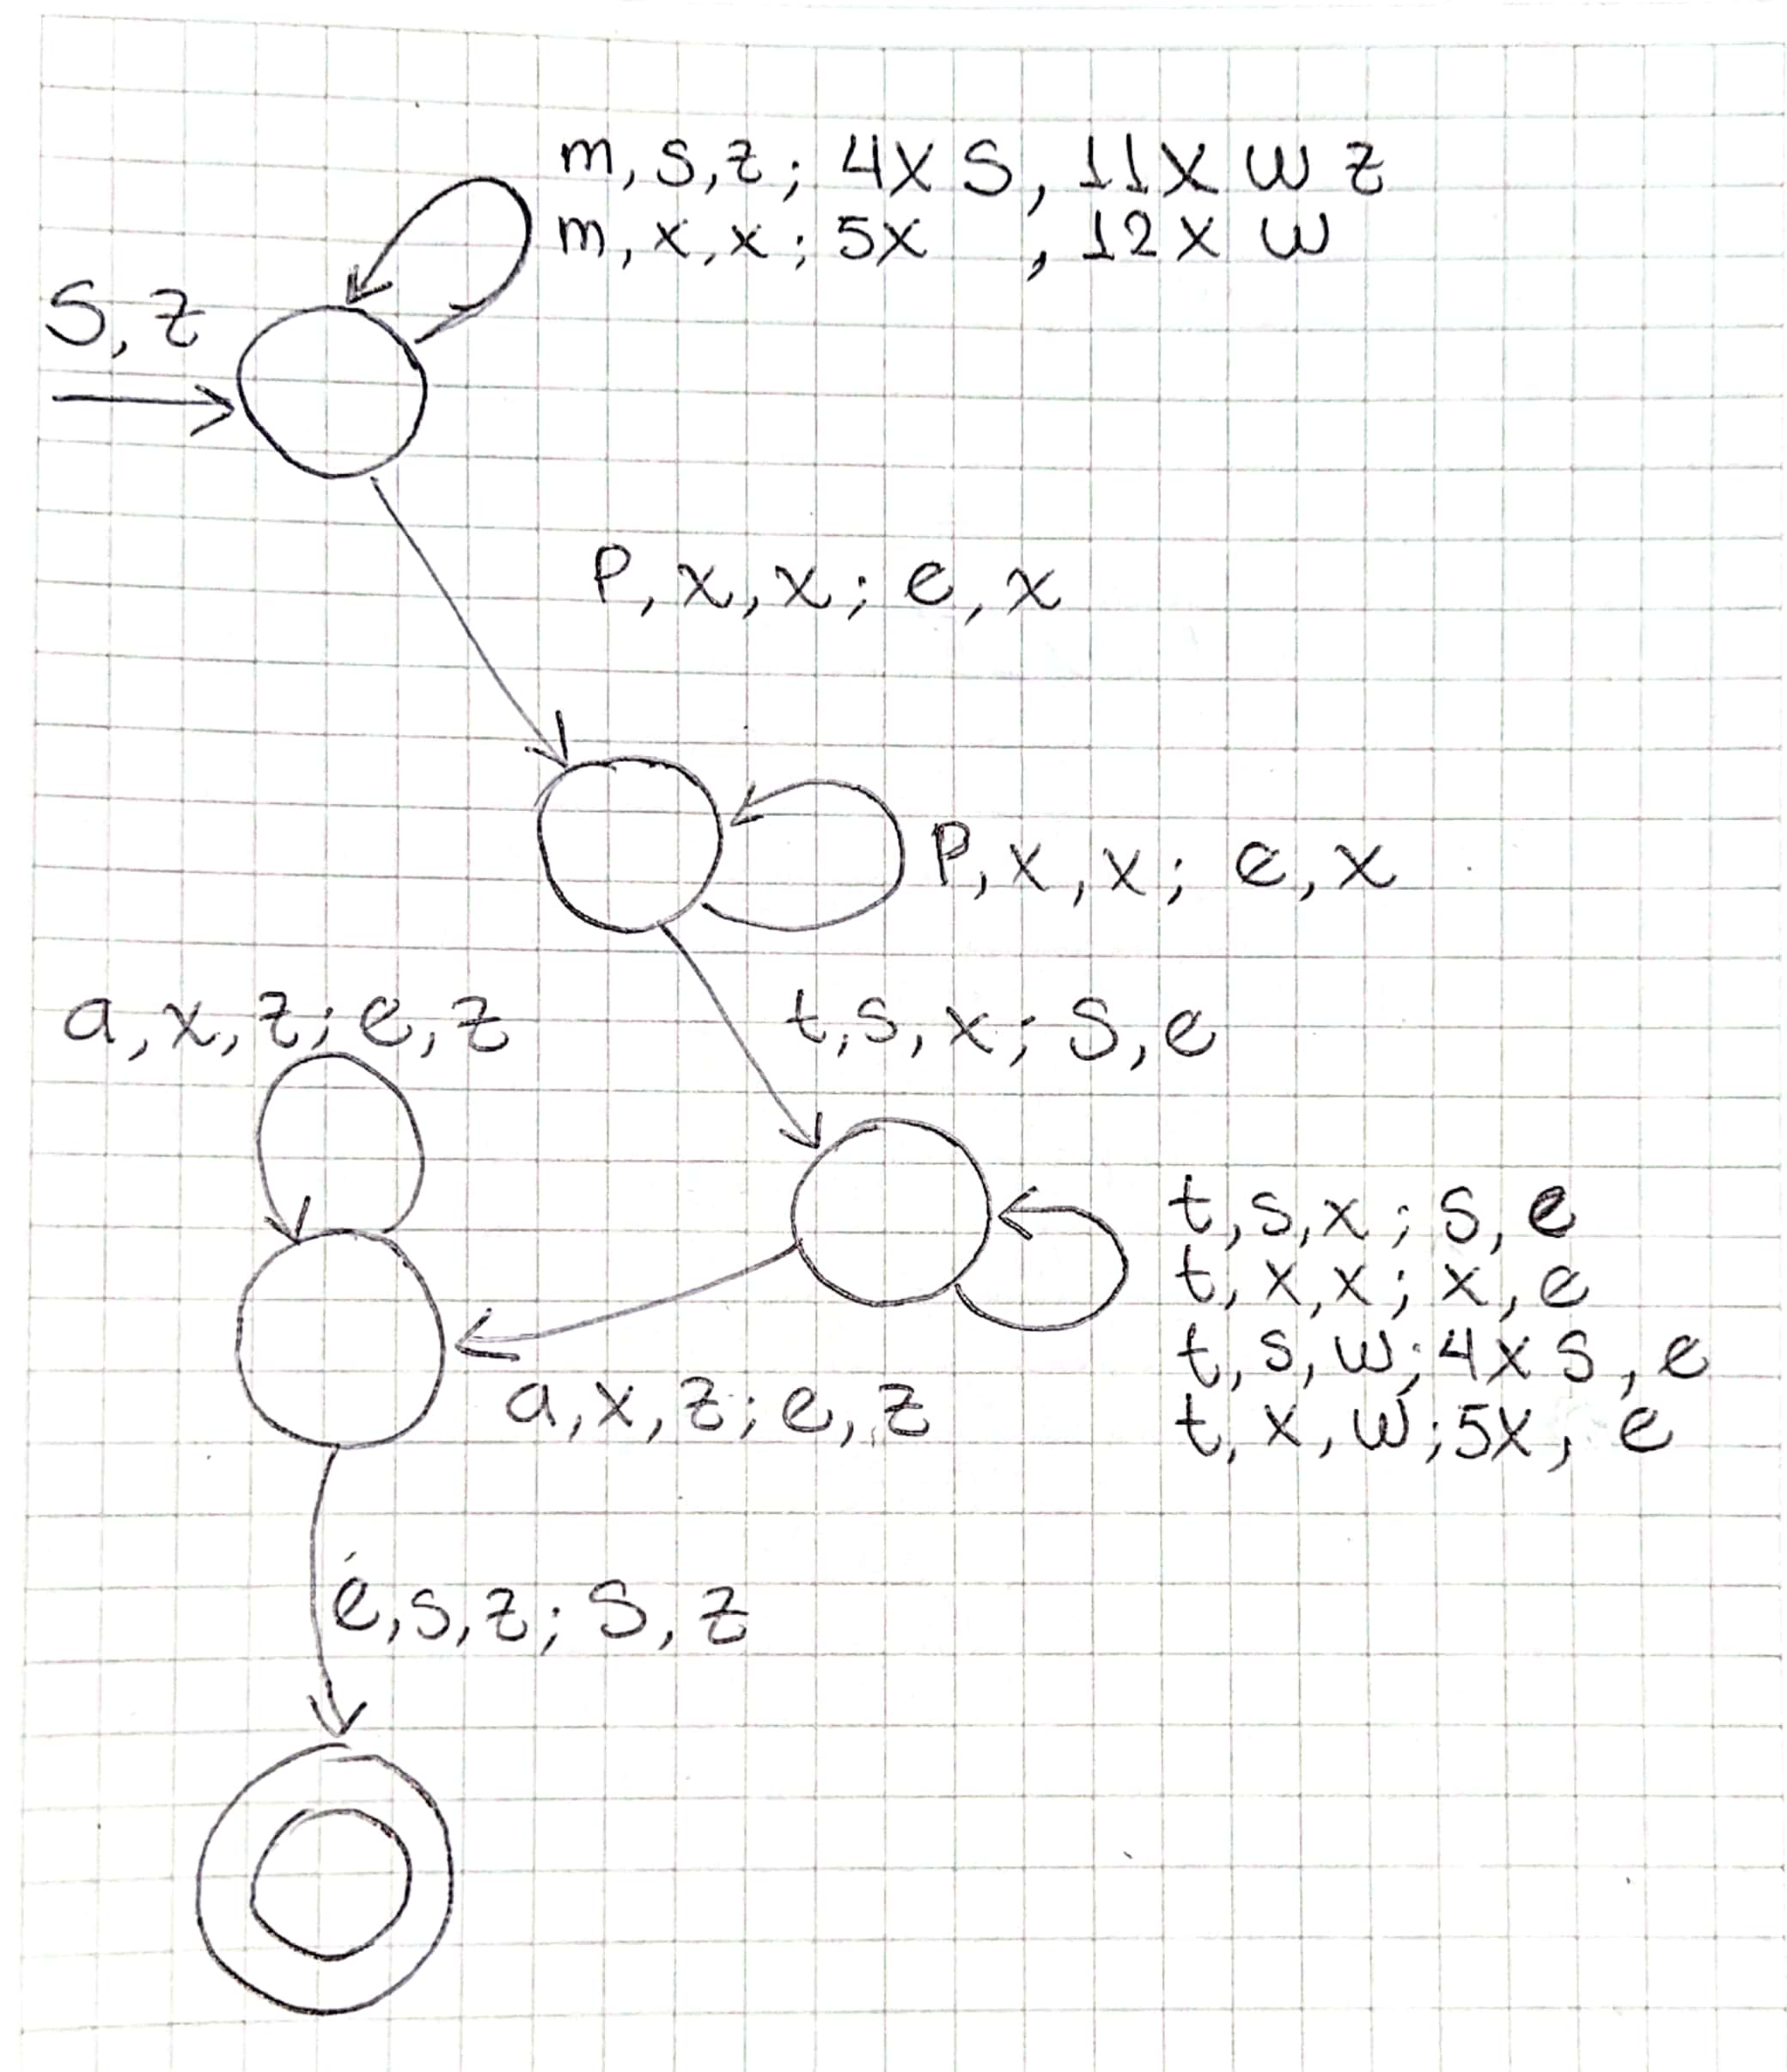 m, s, z; 4x s, 11x w z
m, x, x; 5x , 12x w
S, z
P, x, x; e, x
P, x, x; e, x
a, x, z; e, z
t, s, x; s, e
t, s, x; s, e
t, x, x; x, e
t, s, w; 4x s, e
t, x, w; 5x, e
a, x, z; e, z
e, s, z; s, z